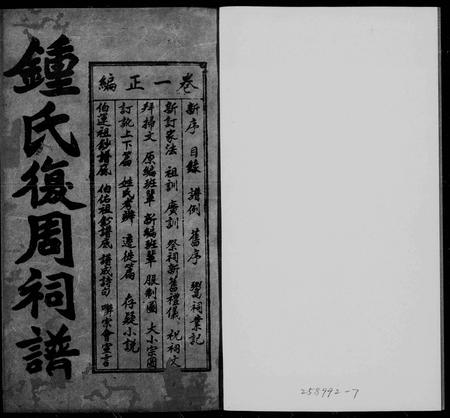 鍾氏復周祠譜
卷一正編
新序 目錄 譜例 舊序 鬻祠業記
新訂家法 祖訓 廣訓 祭祠新舊禮儀 祝祠文
拜掃文 原編班輩 新編班輩 服制圖 大小宗圖
訂訛上下篇 姓氏考辯 遷徙篇 存疑小說
伯運祖鈔譜底 伯佑祖鈔譜底 譜成詩句 聯宗會宣言
258992-7